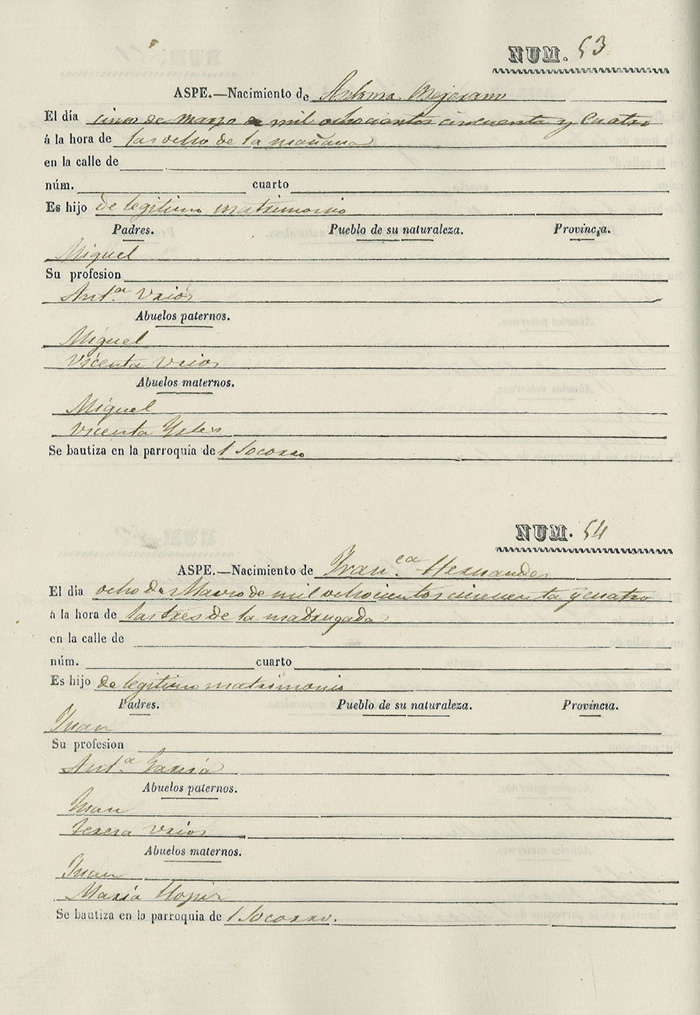 NUM. 53
ASPE.—Nacimiento de
El día cinco de marzo de mil ochocientos cincuenta y cuatro
á la hora de las ocho de la mañana
en la calle de
núm. cuarto
Es hijo de legitimo matrimonio
Padres. Pueblo de su naturaleza. Provincia.
Miguel
Su profesion
Antª
Abuelos paternos.
Miguel
Vicenta
Abuelos maternos.
Miguel
Vicenta
Se bautiza en la parroquia de l Socorro
NUM. 54
ASPE.—Nacimiento de Franca Hernandez
El día ocho de Marzo de mil ochocientos cincuenta y cuatro
á la hora de las tres de la madrugada
en la calle de
núm. cuarto
Es hijo de legitimo matrimonio
Padres. Pueblo de su naturaleza. Provincia.
Juan
Su profesion
Antª Garcia
Abuelos paternos.
Juan
Teresa
Abuelos maternos.
Juan
Maria
Se bautiza en la parroquia de l Socorro.